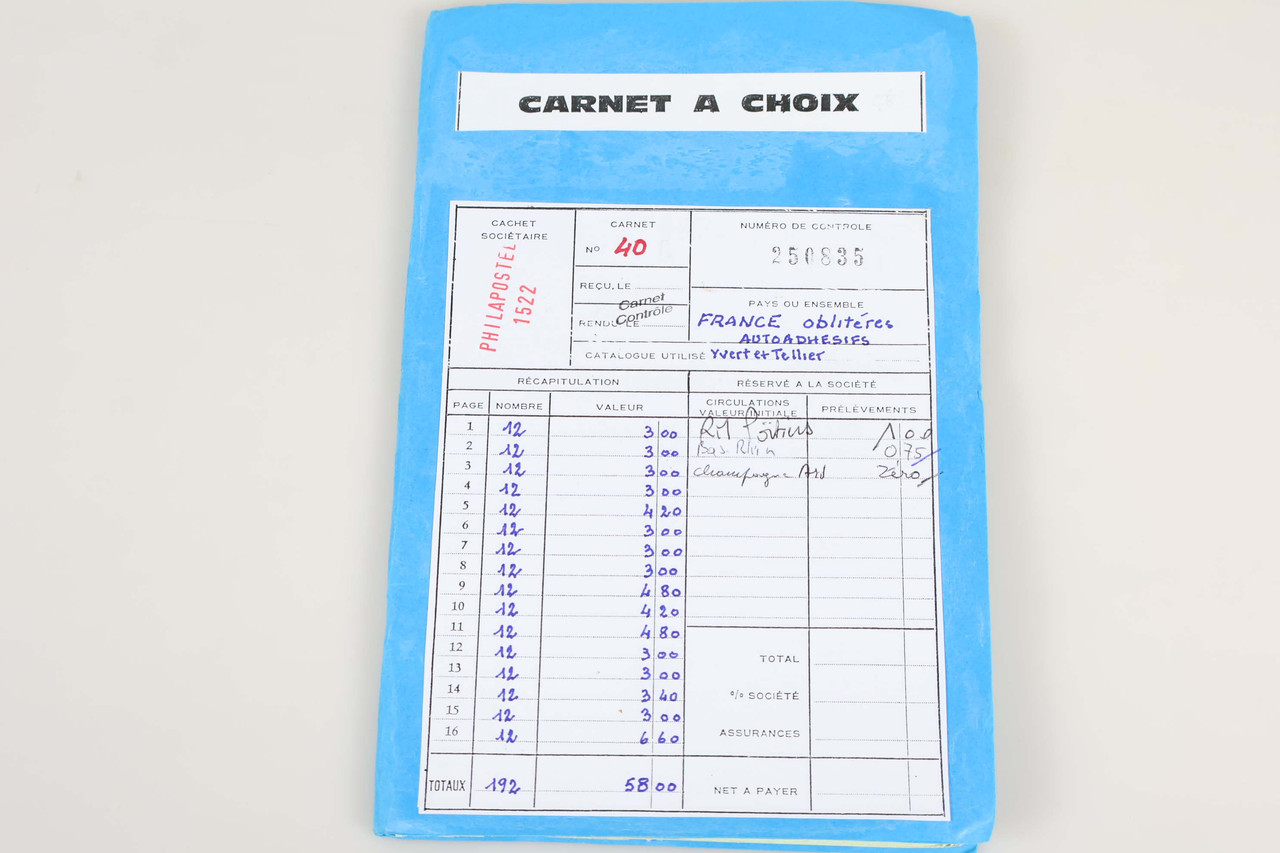 CARNET A CHOIX
CACHET SOCIÉTAIRE
PHILAPOSTEL
1522
CARNET
No 40
REÇU, LE
RENDU, LE
Carnet
Contrôlé
NUMÉRO DE CONTROLE
250835
PAYS OU ENSEMBLE
FRANCE oblitéres
AUTOADHESIFS
CATALOGUE UTILISÉ Yvert et Tellier
RÉCAPITULATION RÉSERVÉ A LA SOCIÉTÉ
PAGE NOMBRE VALEUR CIRCULATIONS VALEUR INITIALE PRÉLÈVEMENTS
1 12 3 00 Poitiers 1 00
2 12 3 00 Bas Rhin 0 75
3 12 3 00 Champagne Ard Zéro
4 12 3 00
5 12 4 20
6 12 3 00
7 12 3 00
8 12 3 00
9 12 4 80
10 12 4 20
11 12 4 80
12 12 3 00
13 12 3 00
14 12 3 40
15 12 3 00
16 12 6 60
TOTAL
% SOCIÉTÉ
ASSURANCES
TOTAUX 192 58 00 NET A PAYER